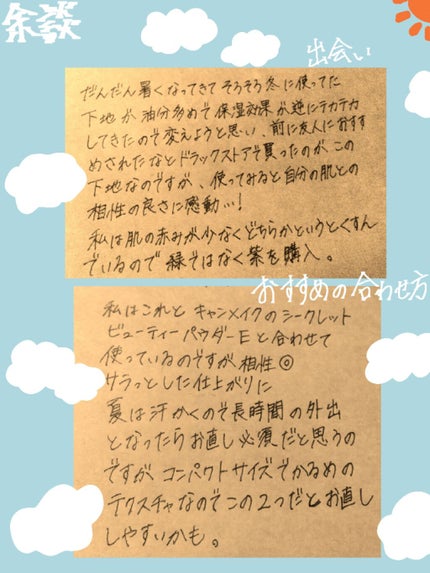 余談
出会い
だんだん暑くなってきて そろそろ冬に使ってた
下地が 油分多めで保湿効果が逆にテカテカ
してきたので変えようと思い、前に友人におすす
めされたなとドラックストアで買ったのが この
下地なのですが、使ってみると自分の肌との
相性の良さに感動…!
私は肌の赤みが少なくどちらかというとくすん
でいるので 緑ではなく紫を購入。
おすすめの合わせ方
私はこれと キャンメイクのシークレット
ビューティーパウダーEと合わせて
使っているのですが相性◎
サラっとした仕上がりに
夏は汗かくので長時間の外出
となったらお直し必須だと思うの
ですが コンパクトサイズでかるめの
テクスチャなのでこの2つだとお直し
しやすいかも。